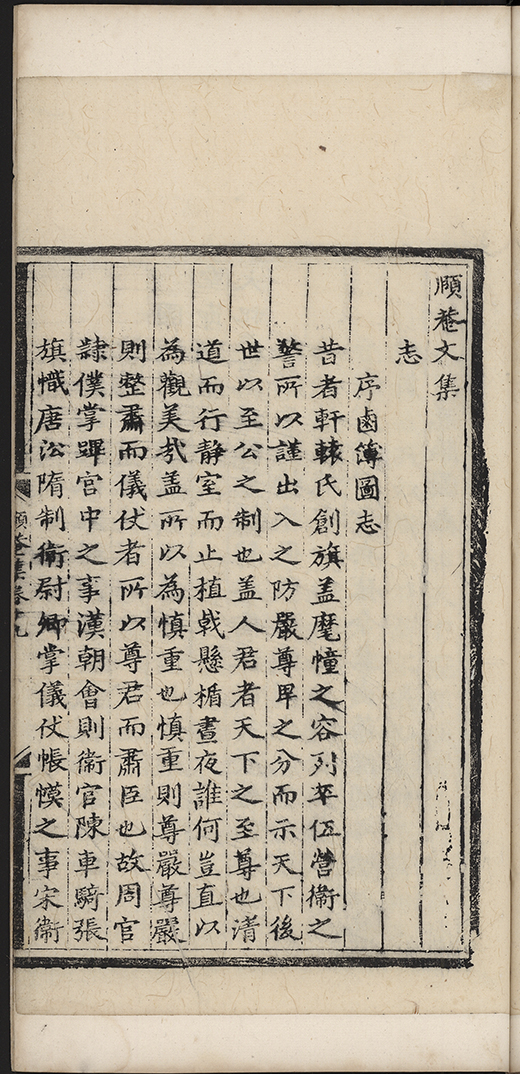 頤菴文集
志
序鹵簿圖志
昔者軒轅氏創旗盖麾幢之容列卒伍營衛之
警所以謹出入之防嚴尊卑之分而示天下後
世以至公之制也盖人君者天下之至尊也清
道而行静室而止植戟懸楯晝夜誰何豈直以
為觀美㢤盖所以為慎重也慎重則尊嚴尊嚴
則整肅而儀仗者所以尊君而肅臣也故周官
隷僕掌蹕宫中之事漢朝會則衛官陳車騎張
旗幟唐㳂隋制衛尉卿掌儀仗帳幙之事宋衛
頤菴集卷十九